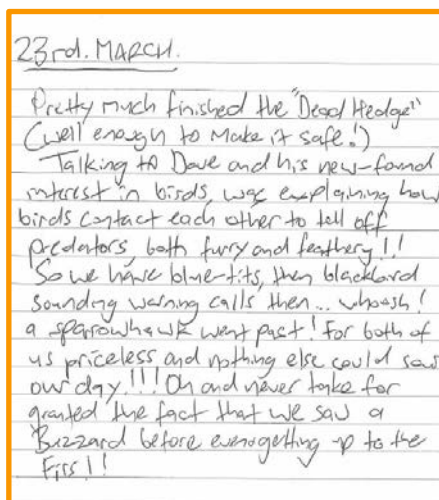 23rd. MARCH.
Pretty much finished the "Dead Hedge"
(well enough to make it safe!)
Talking to Dave and his new-found
interest in birds, was explaining how
birds contact each other to tell off
predators, both furry and feathery!!
So we have blue-tits, then blackbird
sounding warning calls then... whoosh!
a sparowhawk went past! For both of
us priceless and nothing else could
our day!!! Oh and never take for
granted the fact that we saw a
Buzzard before even getting up to the
Firs!!